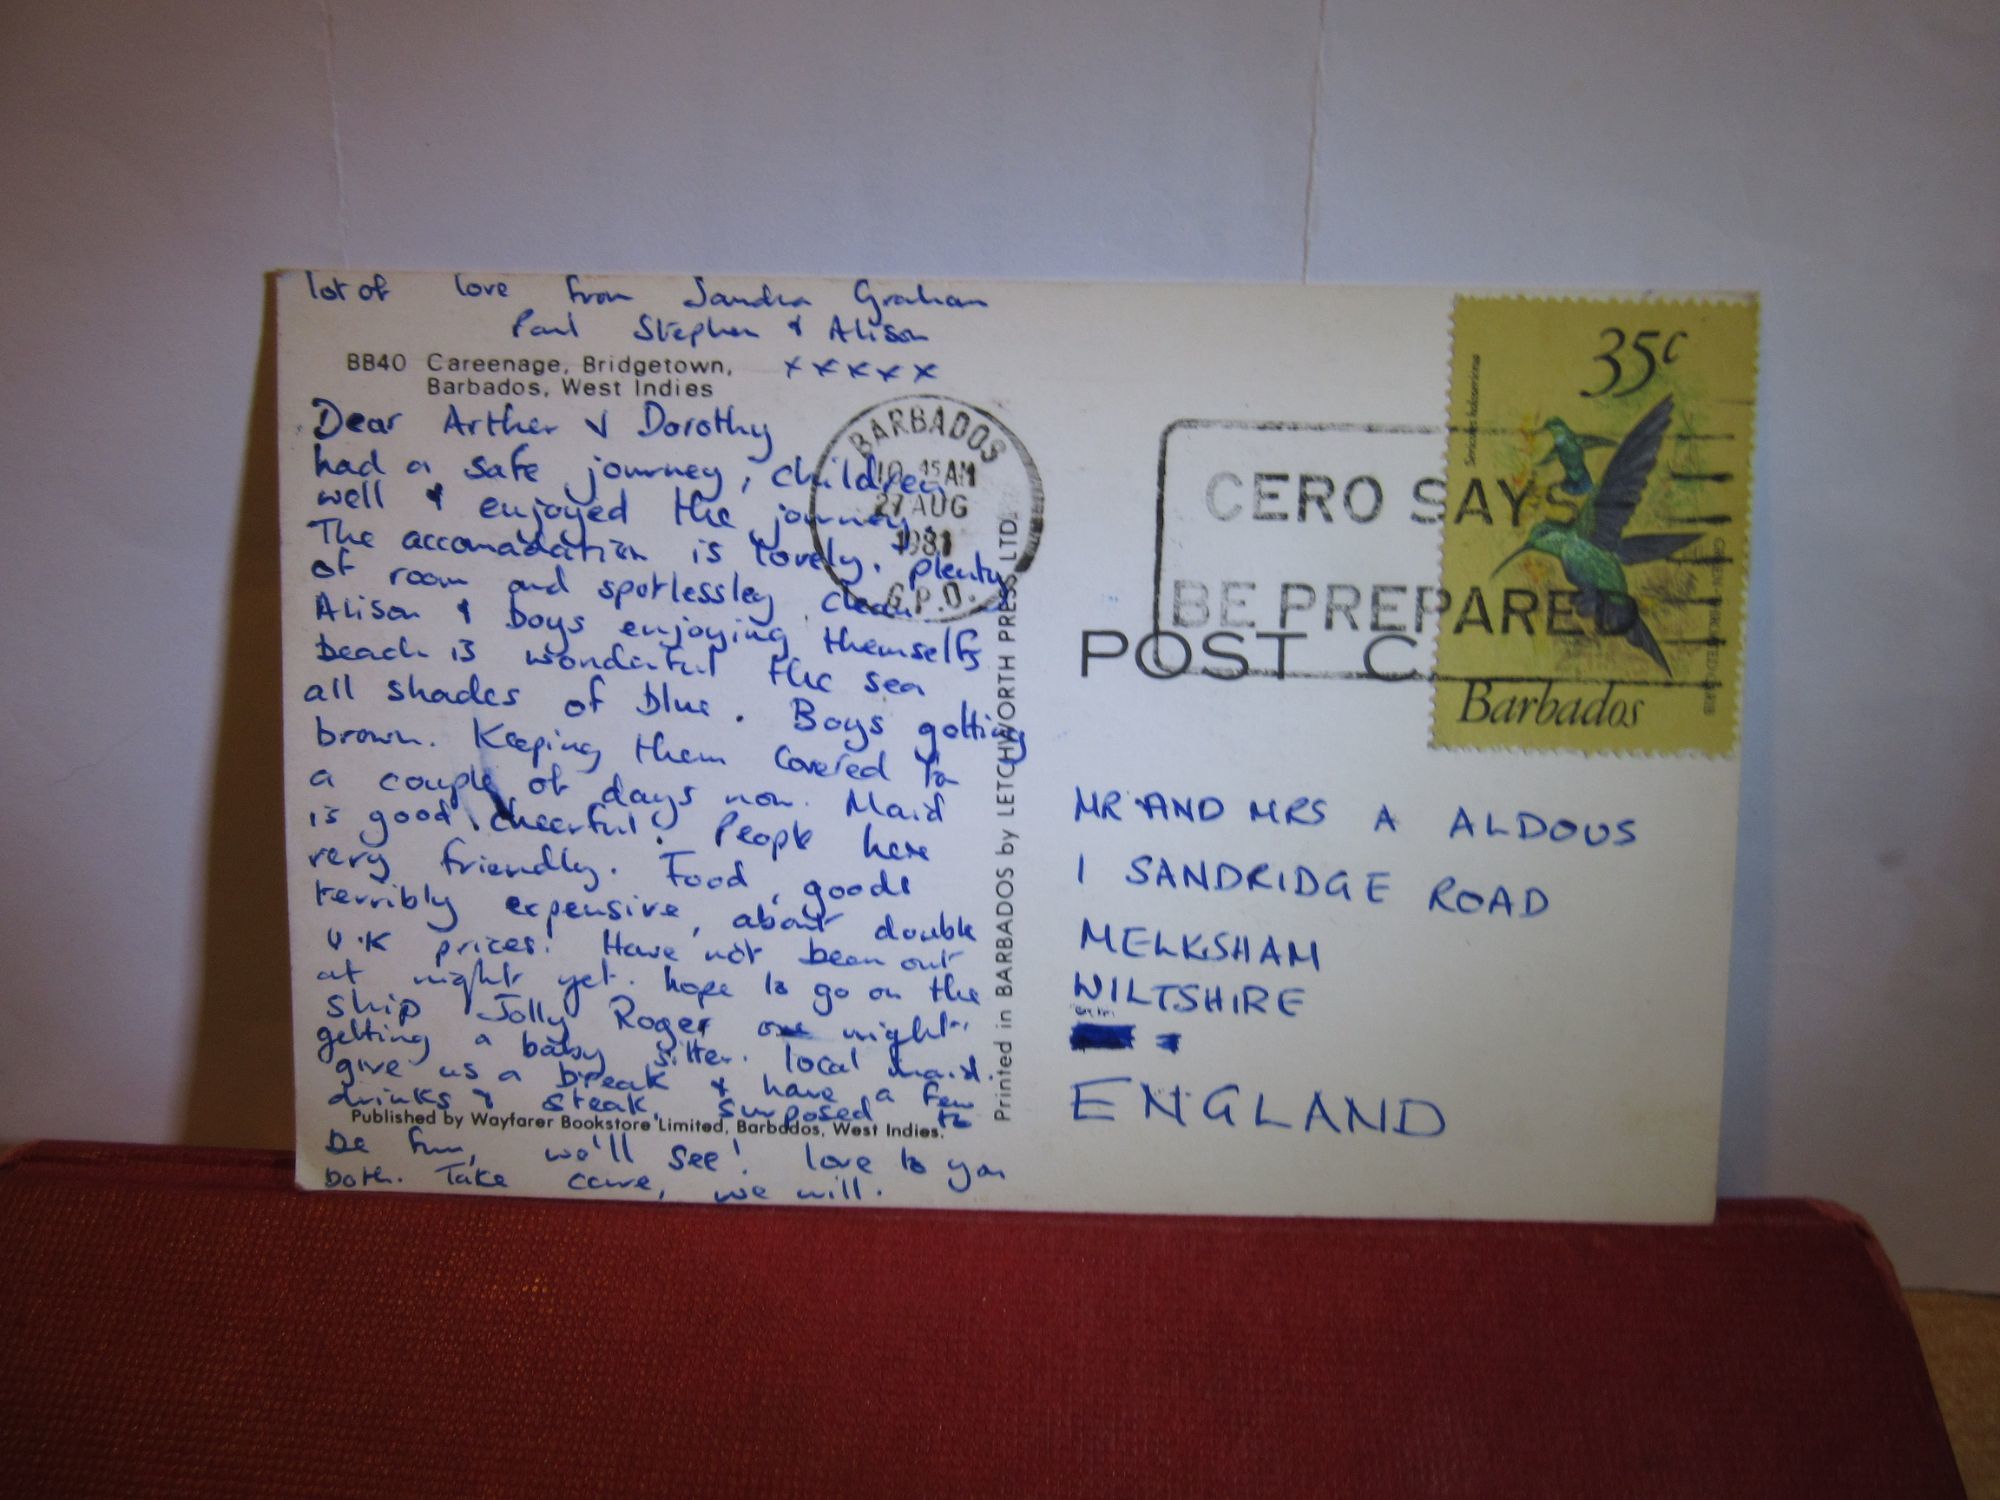 lot of love from Sandra Graham
Paul Stephen & Alison
x x x x x
BB40 Careenage, Bridgetown,
Barbados, West Indies
Dear Arther & Dorothy
had a safe journey, children
well & enjoyed the journey.
The accomadation is lovely. plenty
of room and spotlessley clean.
Alison & boys enjoying themselfs
beach is wonderful the sea
all shades of blue. Boys getting
brown. Keeping them covered for
a couple of days now. Maid
is good, cheerful. People here
very friendly. Food, goods
terribly expensive, about double
U.K prices. Have not been out
at night yet. hope to go on the
ship Jolly Roger one night.
getting a baby sitter. local maid.
give us a break & have a few
drinks & steak. surposed to
Published by Wayfarer Bookstore Limited, Barbados, West Indies.
be fun, we'll see! love to you
both. Take care, we will.
Printed in BARBADOS by LETCHWORTH PRESS LTD.
BARBADOS
10 45 AM
27 AUG
1981
G.P.O.
CERO SAYS
BE PREPARED
POST C
35c
Barbados
MR AND MRS A ALDOUS
1 SANDRIDGE ROAD
MELKSHAM
WILTSHIRE
ENGLAND